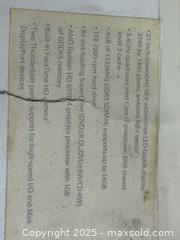 • 27-inch (viewable) LED widescreen LED-backlit display
2560 by 1440 pixels ambient light sensor
• 3.4GHz quad-core Intel Core i7 processor 8MB shared
level 3 cache
• 4GB of 1333MHz DDR3 SDRAM, supports up to 16GB
• 1TB 7200-rpm hard drive
• 8x slot-loading SuperDrive (DVD±R DL/DVD±RW/CD-RW)
• AMD Radeon HD 6970M graphics processor with 1GB
of GDDR5 memory
• Built-in FaceTime HD camera
• Two Thunderbolt ports support for high-speed I/O and Mini
DisplayPort devices